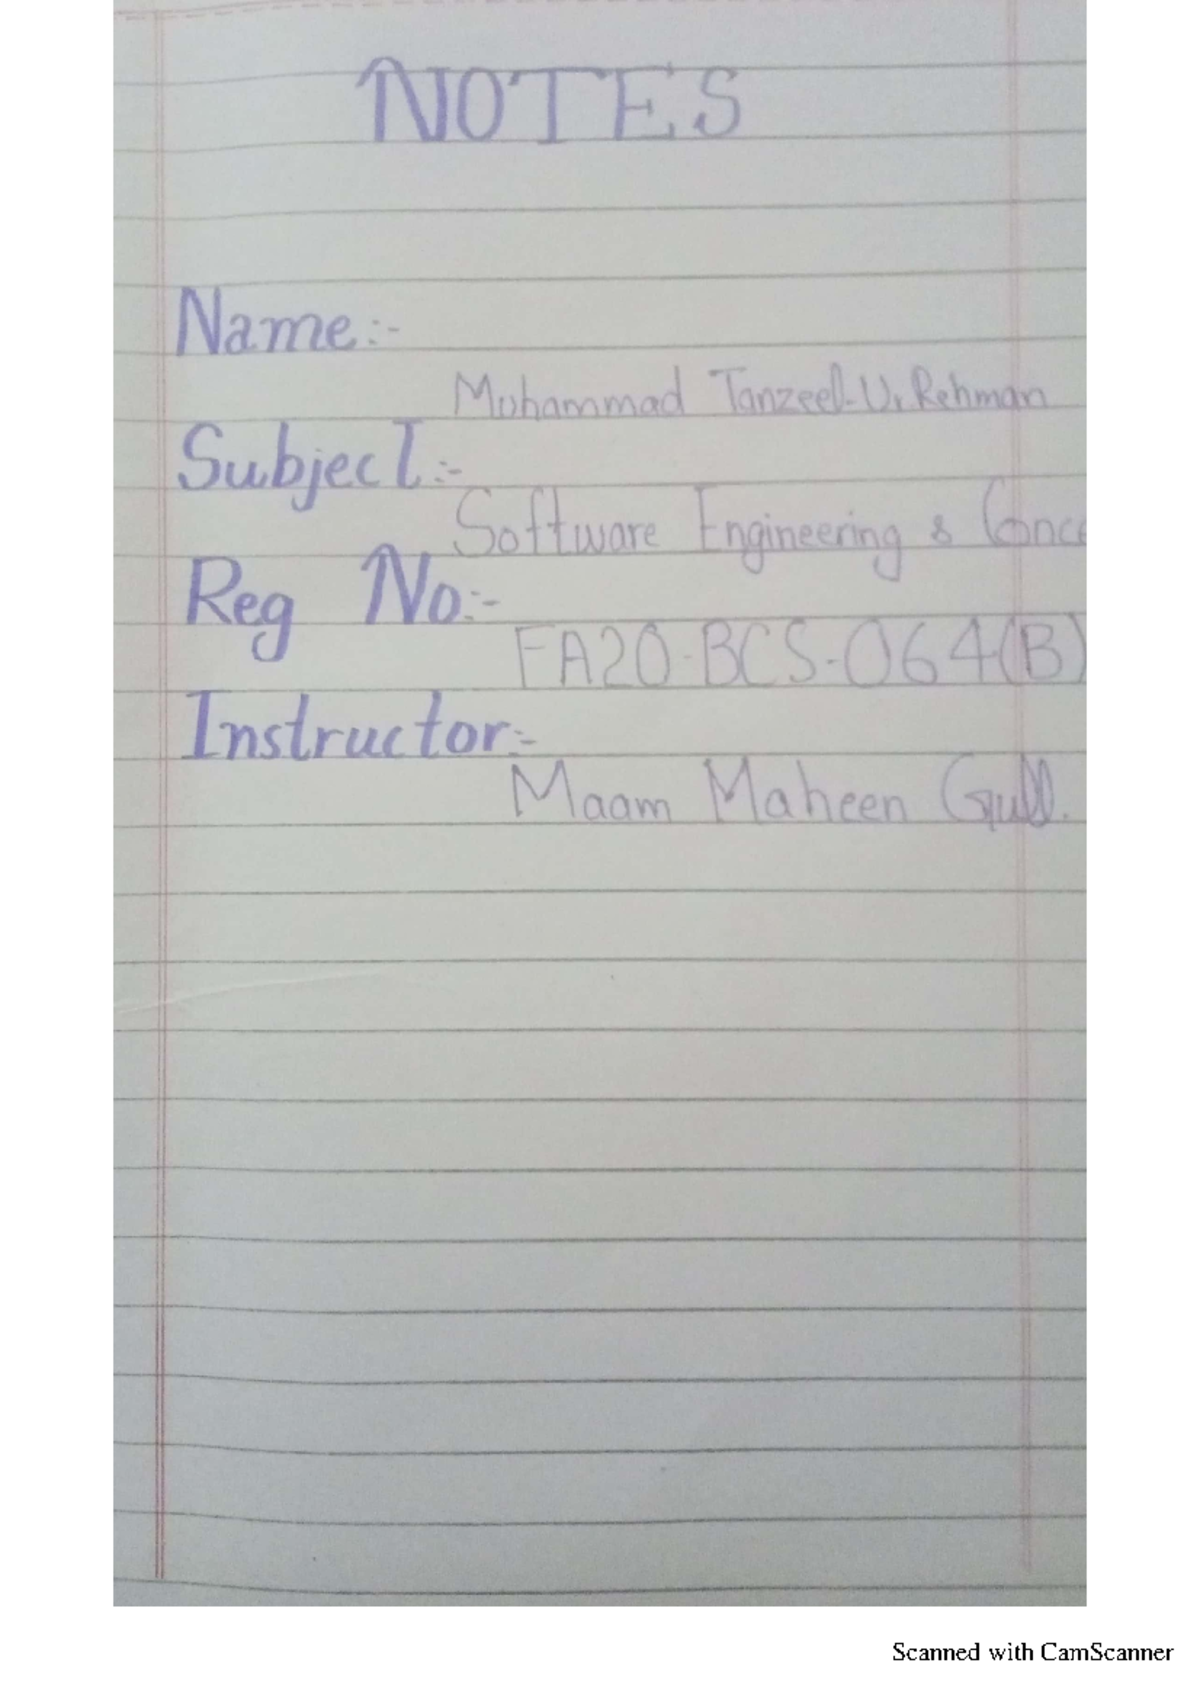 NOTES
Name:-
Muhammad Tanzeel-U, Rehman
Subject:-
Software Engineering & Conce
Reg No:-
FA20-BCS-064(B)
Instructor:-
Maam Maheen Gull.
Scanned with CamScanner